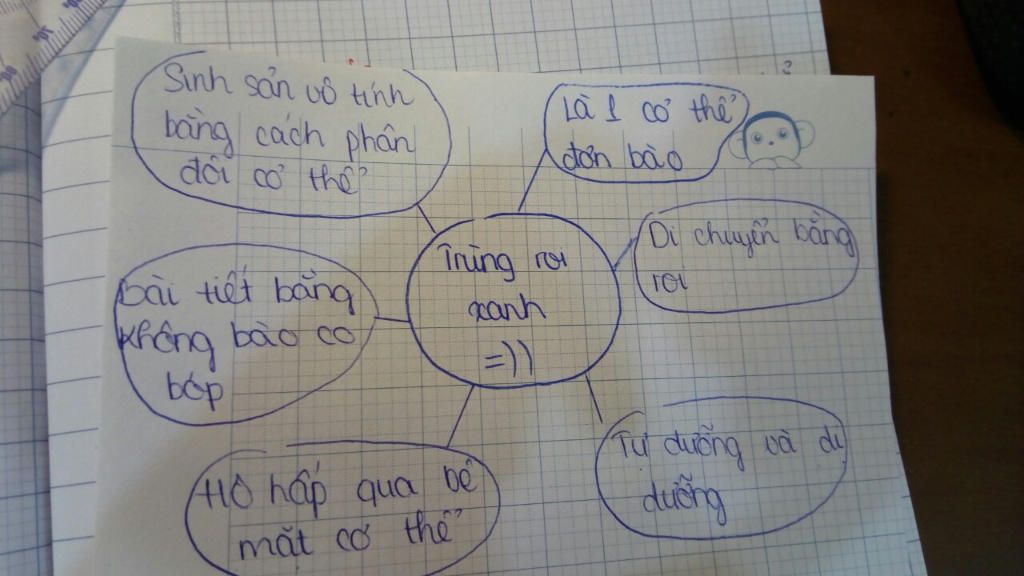 Sinh sản vô tính
bằng cách phân
đôi cơ thể
Là 1 cơ thể
đơn bào
Trùng roi
xanh
=))
Di chuyển bằng
roi
Bài tiết bằng
không bào co
bóp
Tự dưỡng và dị
dưỡng
Hô hấp qua bề
mặt cơ thể